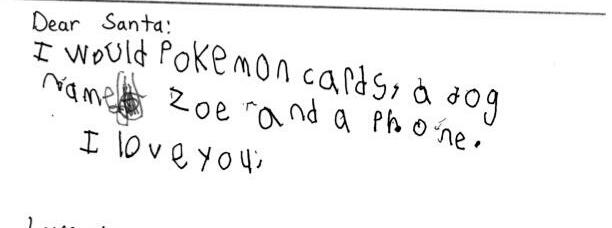 Dear Santa:
I would Pokemon cards, a dog
name Zoe and a phone.
I love you